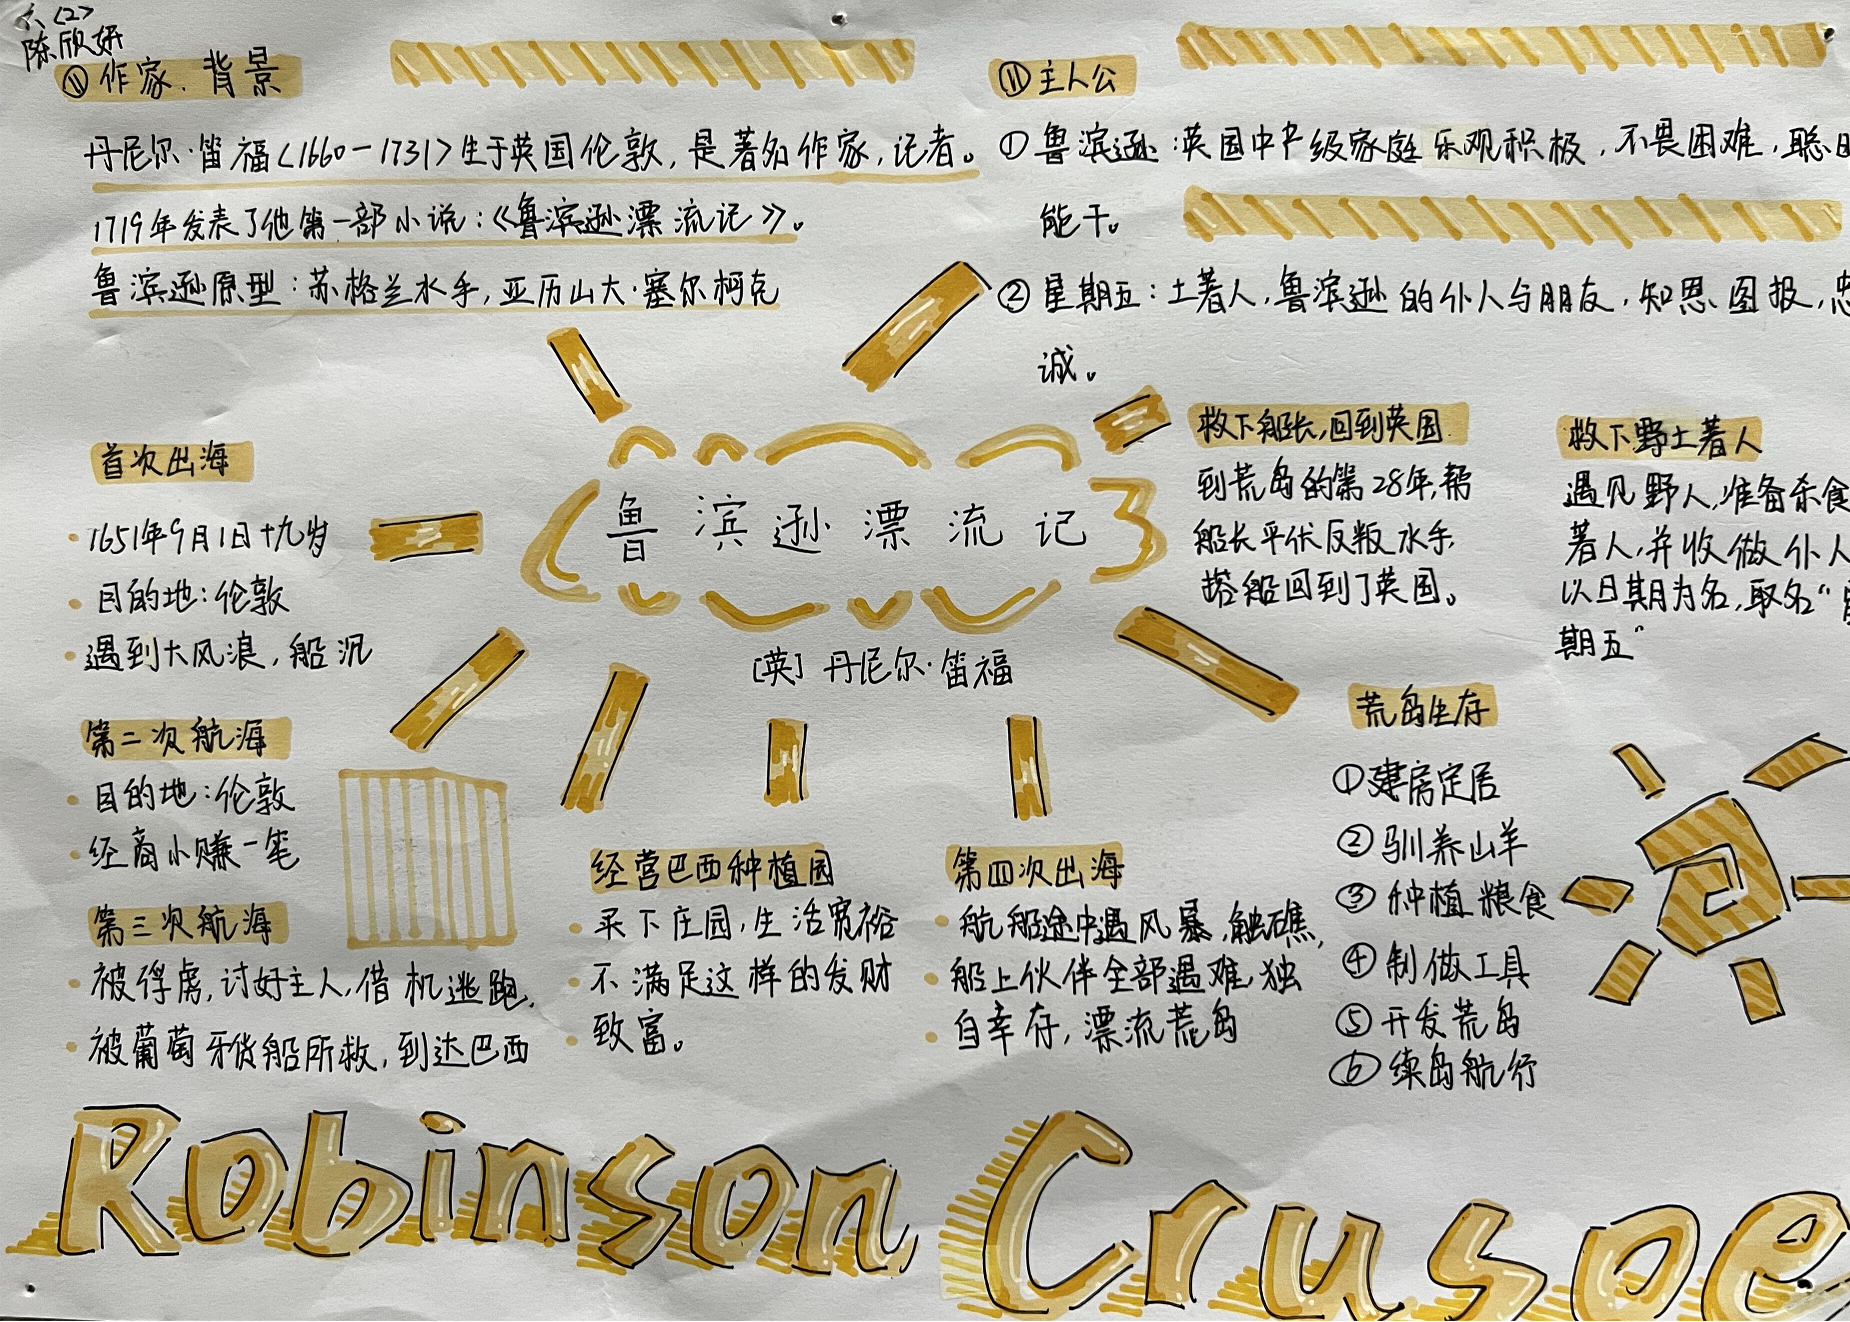 六(2)
陈欣妍
⑪作家.背景
丹尼尔·笛福(1660-1731)生于英国伦敦,是著名作家,记者。
1719年发表了他第一部小说:《鲁滨逊漂流记》。
鲁滨逊原型:苏格兰水手,亚历山大·塞尔柯克
⑪主人公
①鲁滨逊:英国中产级家庭乐观积极,不畏困难,聪
能干。
②星期五:土著人,鲁滨逊的仆人与朋友,知恩图报,忠
诚。
鲁滨逊漂流记
[英]丹尼尔·笛福
首次出海
·1651年9月1日十九岁
·目的地:伦敦
·遇到大风浪,船沉
第二次航海
·目的地:伦敦
·经商小赚一笔
第三次航海
·被俘虏,讨好主人,借机逃跑,
·被葡萄牙货船所救,到达巴西
经营巴西种植园
·买下庄园,生活宽裕
·不满足这样的发财
·致富。
第四次出海
·航船途中遇风暴,触礁,
·船上伙伴全部遇难,独
·自幸存,漂流荒岛
荒岛生存
①建房定居
②驯养山羊
③种植粮食
④制做工具
⑤开发荒岛
⑥续岛航行
救下野土著人
遇见野人,准备杀食
著人,并收做仆人
以日期为名,取名“星
期五”
救下船长,回到英国
到荒岛的第28年,帮
船长平伏反叛水手,
搭船回到了英国。
Robinson Crusoe